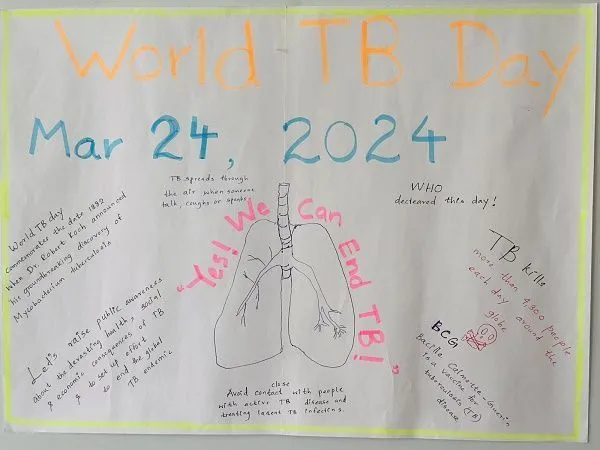 World TB Day
Mar 24, 2024
TB spreads through
the air when someone
talk, coughs or speaks.
WHO
decleared this day!
World TB day
commemorates the date 1882
when Dr. Robert Koch announced
his groundbreaking discovery of
Mycobacterium tuberculosis
"Yes! We Can End TB!"
TB kills
more than 4,300 people
each day around the
globe
Let's raise public awareness
about the devasting health, social
& economic consequences of TB
& to set up effort
to end the global
TB endemic
BCG
Bacille Calmette-Guerin
is a vaccine for
tuberculosis (TB)
disease
close
Avoid contact with people
with active TB disease and
treating latent TB infections.